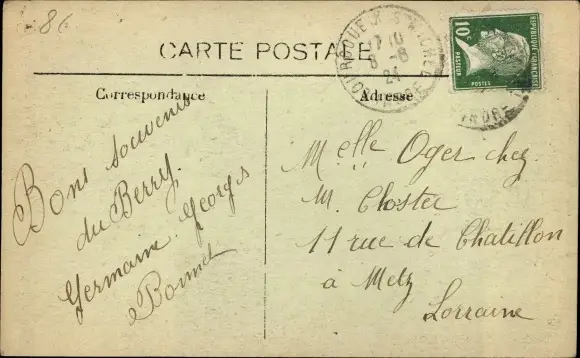 86
CARTE POSTALE
Correspondance
Adresse
Bons souvenirs
du Berry.
Germaine Georges
Bonnet
Melle Oger chez
M. Closter
11 rue de Chatillon
à Metz
Lorraine
10c
REPUBLIQUE FRANÇAISE
PASTEUR
POSTES
17 10
8 -8
24
INDRE